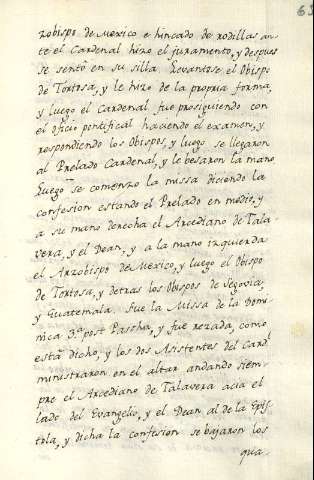 63
zobispo de Mexico e hincado de rodillas an
te el Cardenal hizo el juramento, y despues
se sentò en su silla. Levantose el Obispo
de Tortosa, y le hizo de la propria forma,
y luego el Cardenal fue prosiguiendo con
el oficio pontifical haciendo el examen, y
respondiendo los Obispos, y luego se llegaron
al Prelado Cardenal, y le besaron la mano
Luego se comenzo la missa diciendo la
confesion estando el Prelado en medio, y
a su mano derecha el Arcediano de Tala
vera, y el Dean, y a la mano izquierda
el Arzobispo de Mexico, y luego el Obispo
de Tortosa, y detras los Obispos de Segovia,
y Guatemala. fue la Missa de la Domi
nica 3.ª post Pascha, y fue rezada, como
està dicho, y los dos Asistentes del Card.
ministraron en el altar andando siem-
pre el Arcediano de Talavera acia el
lado del Evangelio, y el Dean al de la Epis
tola, y dicha la confesion se bajaron los
qua-